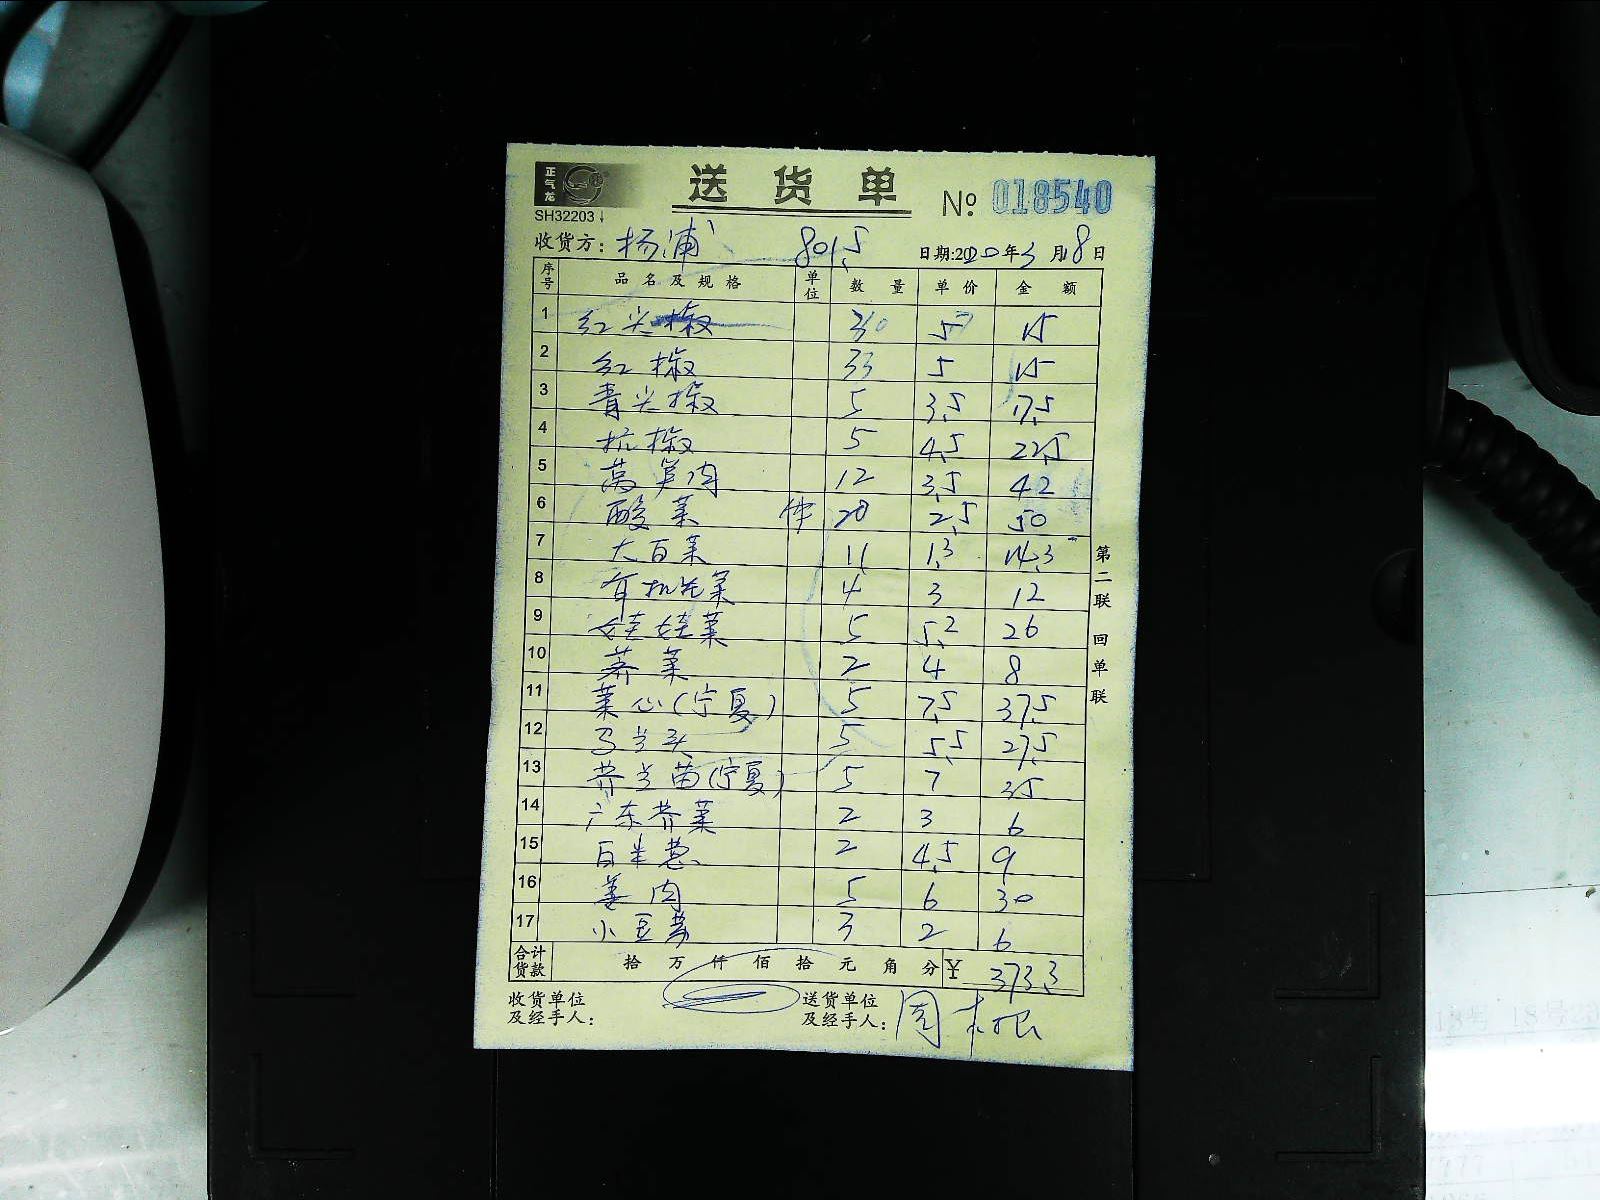 正气龙
送货单
№ 018540
SH32203
收货方：杨浦 8015 日期:2020年3月18日
序号 品名及规格 单位 数量 单价 金额
1 红尖椒 5 15
2 红椒 33 5 15
3 青尖椒 5 3.5 17.5
4 杭椒 5 4.5 22.5
5 莴笋肉 12 3.5 42
6 酸菜 件 20 2.5 50
7 大白菜 11 1.3 14.3
8 有机花菜 4 3 12
9 娃娃菜 5 5.2 26
10 荠菜 2 4 8
11 菜心(宁夏) 5 7.5 37.5
12 马兰头 5 5.5 27.5
13 芥兰苗(宁夏) 5 7 35
14 广东芥菜 2 3 6
15 白米葱 2 4.5 9
16 姜肉 5 6 30
17 小豆芽 3 2 6
合计货款 拾 万 仟 佰 拾 元 角 分 ¥ 373.3
收货单位及经手人：
送货单位及经手人：周
第二联 回单联